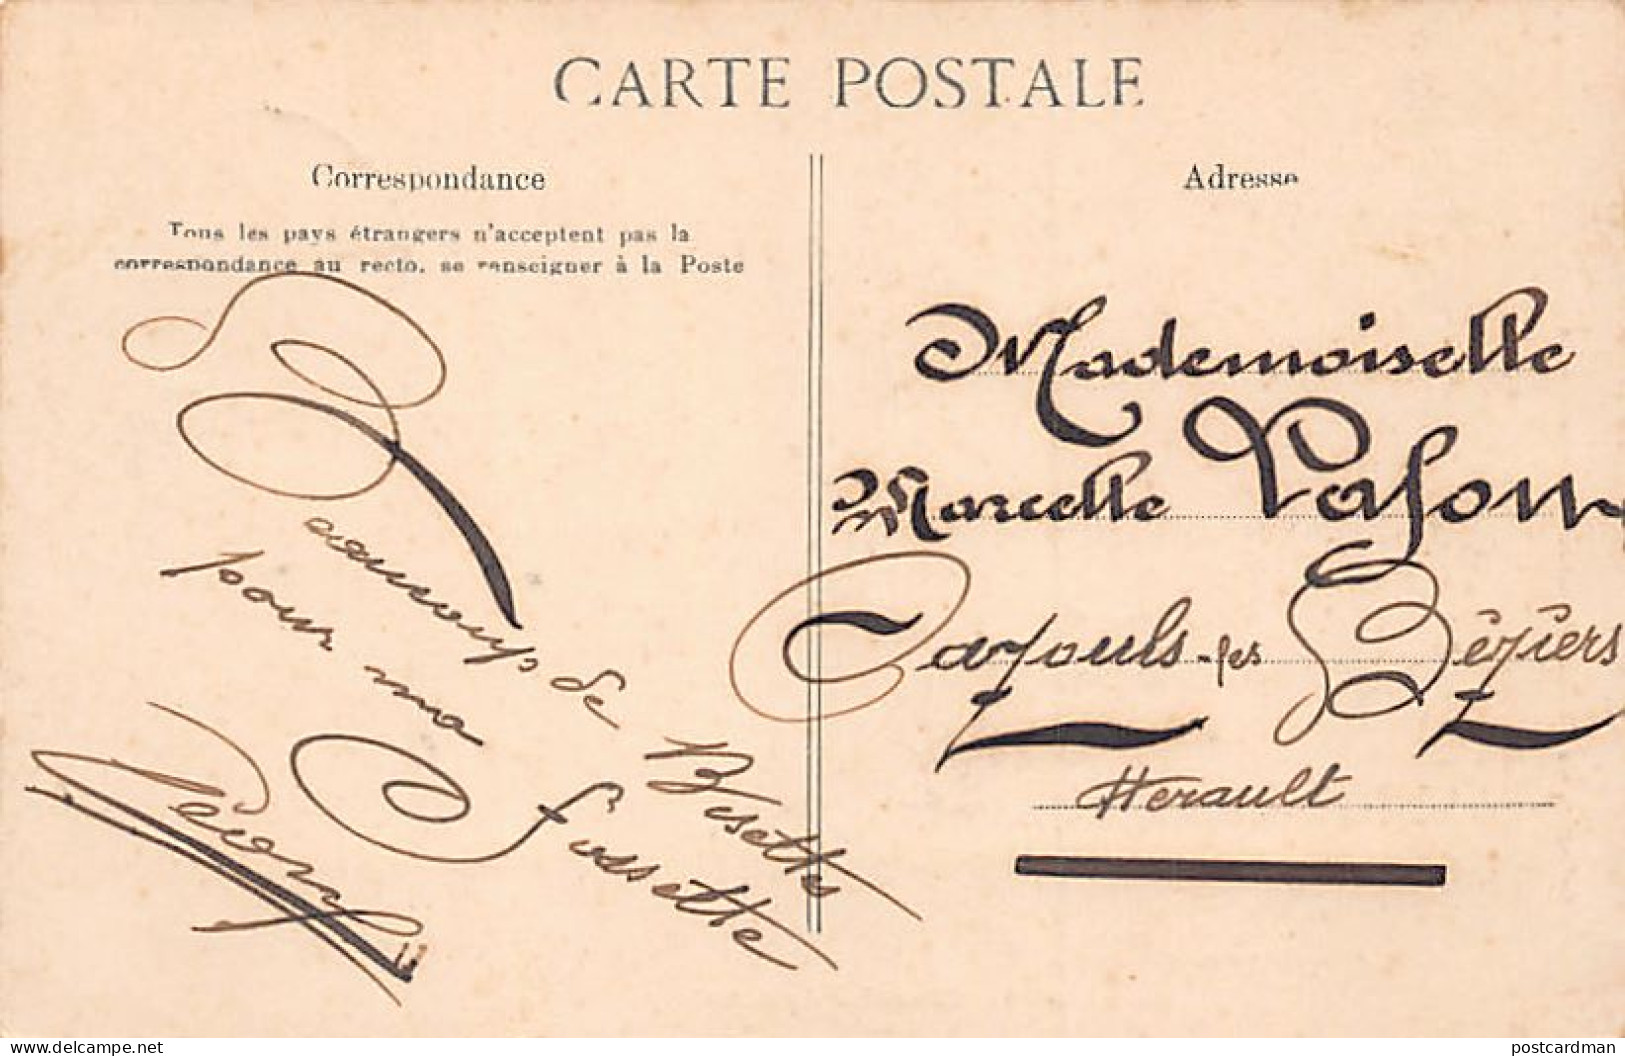 CARTE POSTALE
Correspondance
Tous les pays étrangers n'acceptent pas la
correspondance au recto, se renseigner à la Poste
Adresse
Mademoiselle
Marcelle
Cazouls-les Béziers
Herault
de Bisettes
pour ma fossette
Léon
postcardman
www.delcampe.net